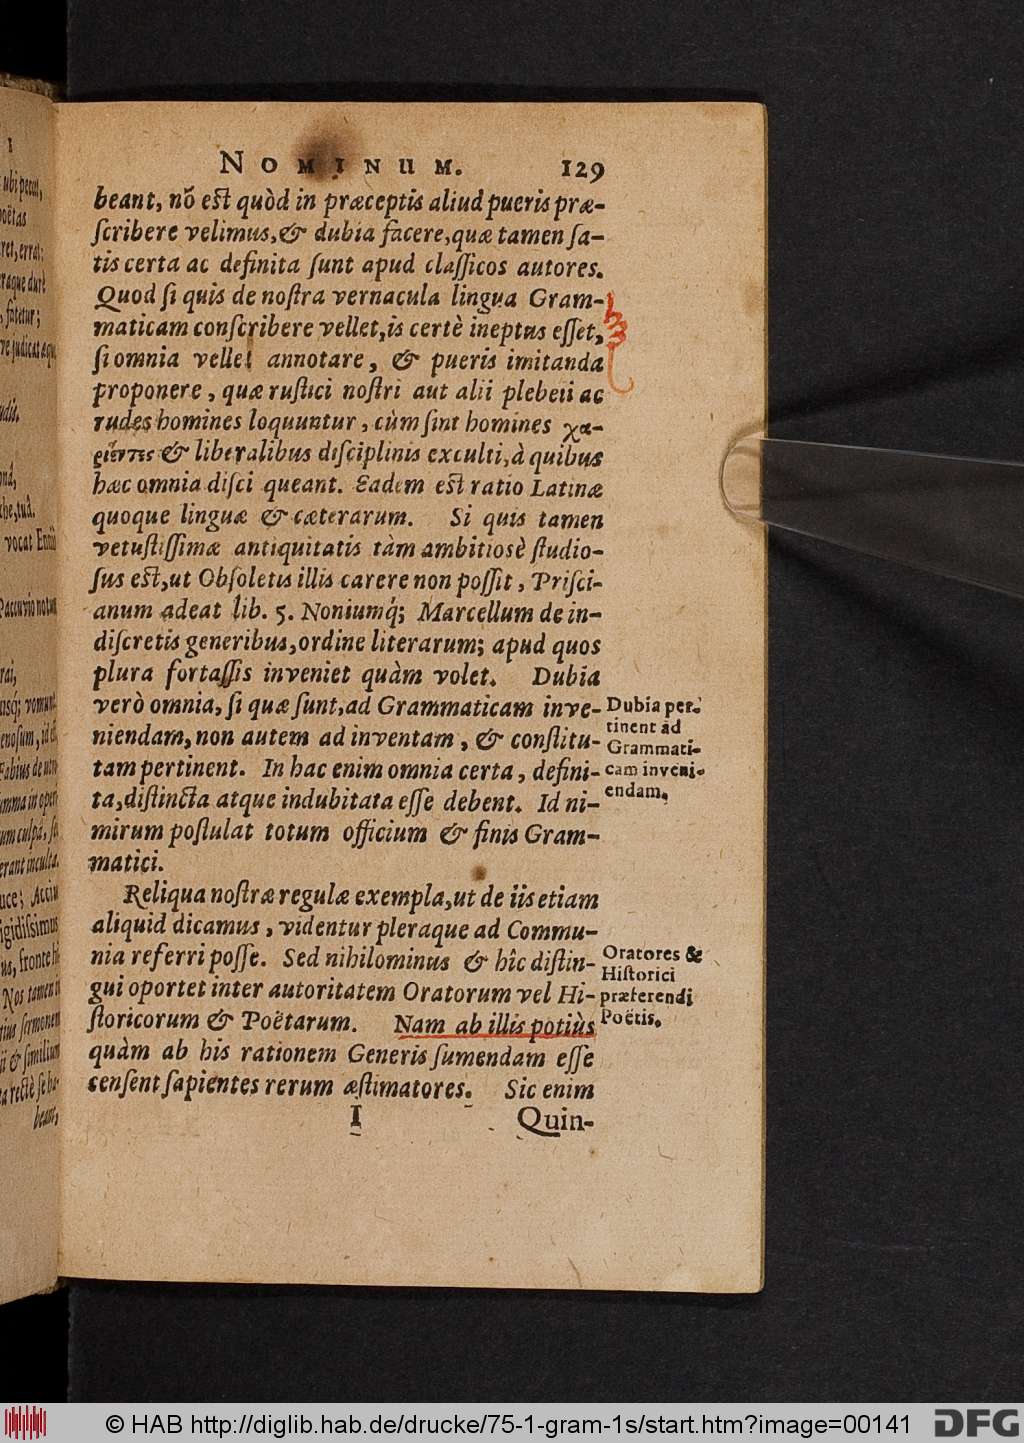 NOMINUM. 129
beant, nõ est quòd in præceptis aliud pueris præ-
ſcribere velimus, & dubia facere, quæ tamen ſa-
tis certa ac definita ſunt apud claſſicos autores.
Quod ſi quis de noſtra vernacula lingua Gram-
maticam conſcribere vellet, is certè ineptus eſſet,
ſi omnia vellet annotare, & pueris imitanda
proponere, quæ ruſtici noſtri aut alii plebeii ac
rudes homines loquuntur, cùm ſint homines χα-
ρίεντες & liberalibus diſciplinis exculti, à quibus
hæc omnia diſci queant. Eadem est ratio Latinæ
quoque linguæ & cæterarum. Si quis tamen
vetuſtiſſimæ antiquitatis tàm ambitiosè ſtudio-
ſus est, ut Obſoletis illis carere non poſſit, Priſci-
anum adeat lib. 5. Noniumq́; Marcellum de in-
diſcretis generibus, ordine literarum; apud quos
plura fortaſſis inveniet quàm volet. Dubia
verò omnia, ſi quæ ſunt, ad Grammaticam inve-
niendam, non autem ad inventam, & conſtitu-
tam pertinent. In hac enim omnia certa, defini-
ta, diſtincta atque indubitata eſſe debent. Id ni-
mirum poſtulat totum officium & finis Gram-
matici.
Dubia per-
tinent ad
Grammati-
cam inveni-
endam.
Reliqua noſtræ regulæ exempla, ut de iis etiam
aliquid dicamus, videntur pleraque ad Commu-
nia referri poſſe. Sed nihilominus & hîc diſtin-
gui oportet inter autoritatem Oratorum vel Hi-
ſtoricorum & Poëtarum. Nam ab illis potiùs
quàm ab his rationem Generis ſumendam eſſe
cenſent ſapientes rerum æſtimatores. Sic enim
Oratores &
Hiſtorici
præferendi
Poëtis.
I Quin-
ubi peccet,
poëtas
ret, errat:
raque durè
, fatetur;
vocat Enniũ
enoſum, id eſt
um culpâ, ſed
erant inculta.
uce; Acciu
igidiſsimus
Nos tamen ii
tius ſermonem
ii & ſimilium
beant,
© HAB http://diglib.hab.de/drucke/75-1-gram-1s/start.htm?image=00141
DFG